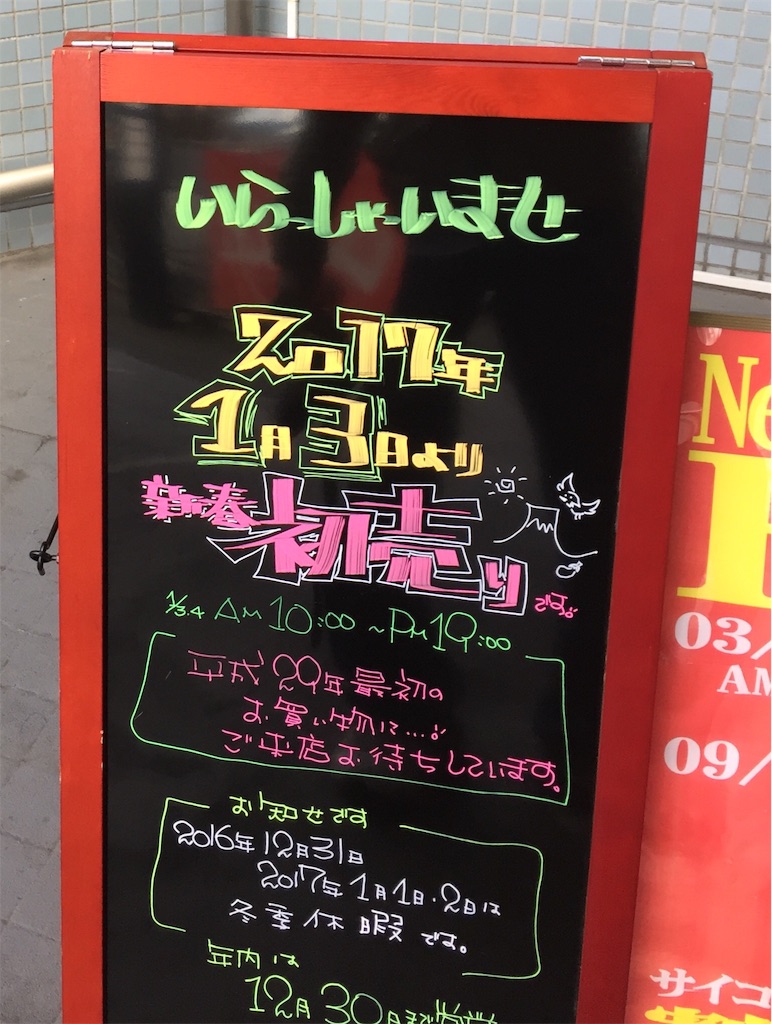 いらっしゃいませ
2017年
1月3日より
新春初売りです!!
1/3.4 AM10:00~PM19:00
平成29年最初の
お買い物に…!!
ご来店お待ちしています。
お知らせです
2016年12月31日
2017年1月1日・2日は
冬季休暇です。
年内は
12月30日まで営業
Ne
03/
AM
09/
サイコ